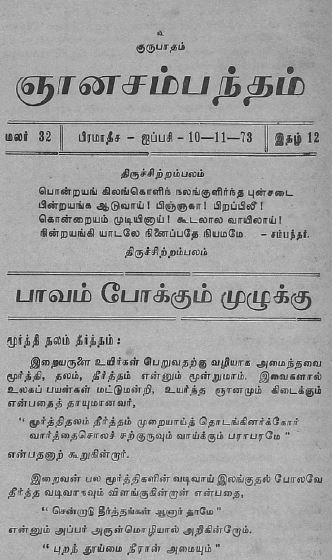 ௳
குருபாதம்
ஞானசம்பந்தம்
மலர் 32 பிரமாதீச - ஐப்பசி - 10-11-73 இதழ் 12
திருச்சிற்றம்பலம்
பொன்றயங் கிலங்கொளிந் நலங்குளிர்ந்த புன்சடை
பின்றயங்க ஆடுவாய்! பிஞ்ஞகா! பிறப்பிலீ!
கொன்றையம் முடியினாய்! கூடலால வாயிலாய்!
நின்றயங்கி யாடலே நினைப்பதே நியமமே. - சம்பந்தர்.
திருச்சிற்றம்பலம்
பாவம் போக்கும் முழுக்கு
மூர்த்தி தலம் தீர்த்தம்:
இறையருளை உயிர்கள் பெறுவதற்கு வழியாக அமைந்தவை
மூர்த்தி, தலம், தீர்த்தம் என்னும் மூன்றுமாம். இவைகளால்
உலகப் பயன்கள் மட்டுமன்றி, உயர்ந்த ஞானமும் கிடைக்கும்
என்பதைத் தாயுமானவர்,
“ மூர்த்திதலம் தீர்த்தம் முறையாய்த் தொடங்கினர்க்கோர்
வார்த்தைசொலச் சற்குருவும் வாய்க்கும் பராபரமே ”
என்பதனாற் கூறுகின்றார்.
இறைவன் பல மூர்த்திகளின் வடிவாய் இலங்குதல் போலவே
தீர்த்த வடிவாகவும் விளங்குகின்றான் என்பதை,
“ சென்றாடு தீர்த்தங்கள் ஆனார் தாமே ”
என்னும் அப்பர் அருள்மொழியால் அறிகின்றோம்.
“ புறந் தூய்மை நீரான் அமையும் ”